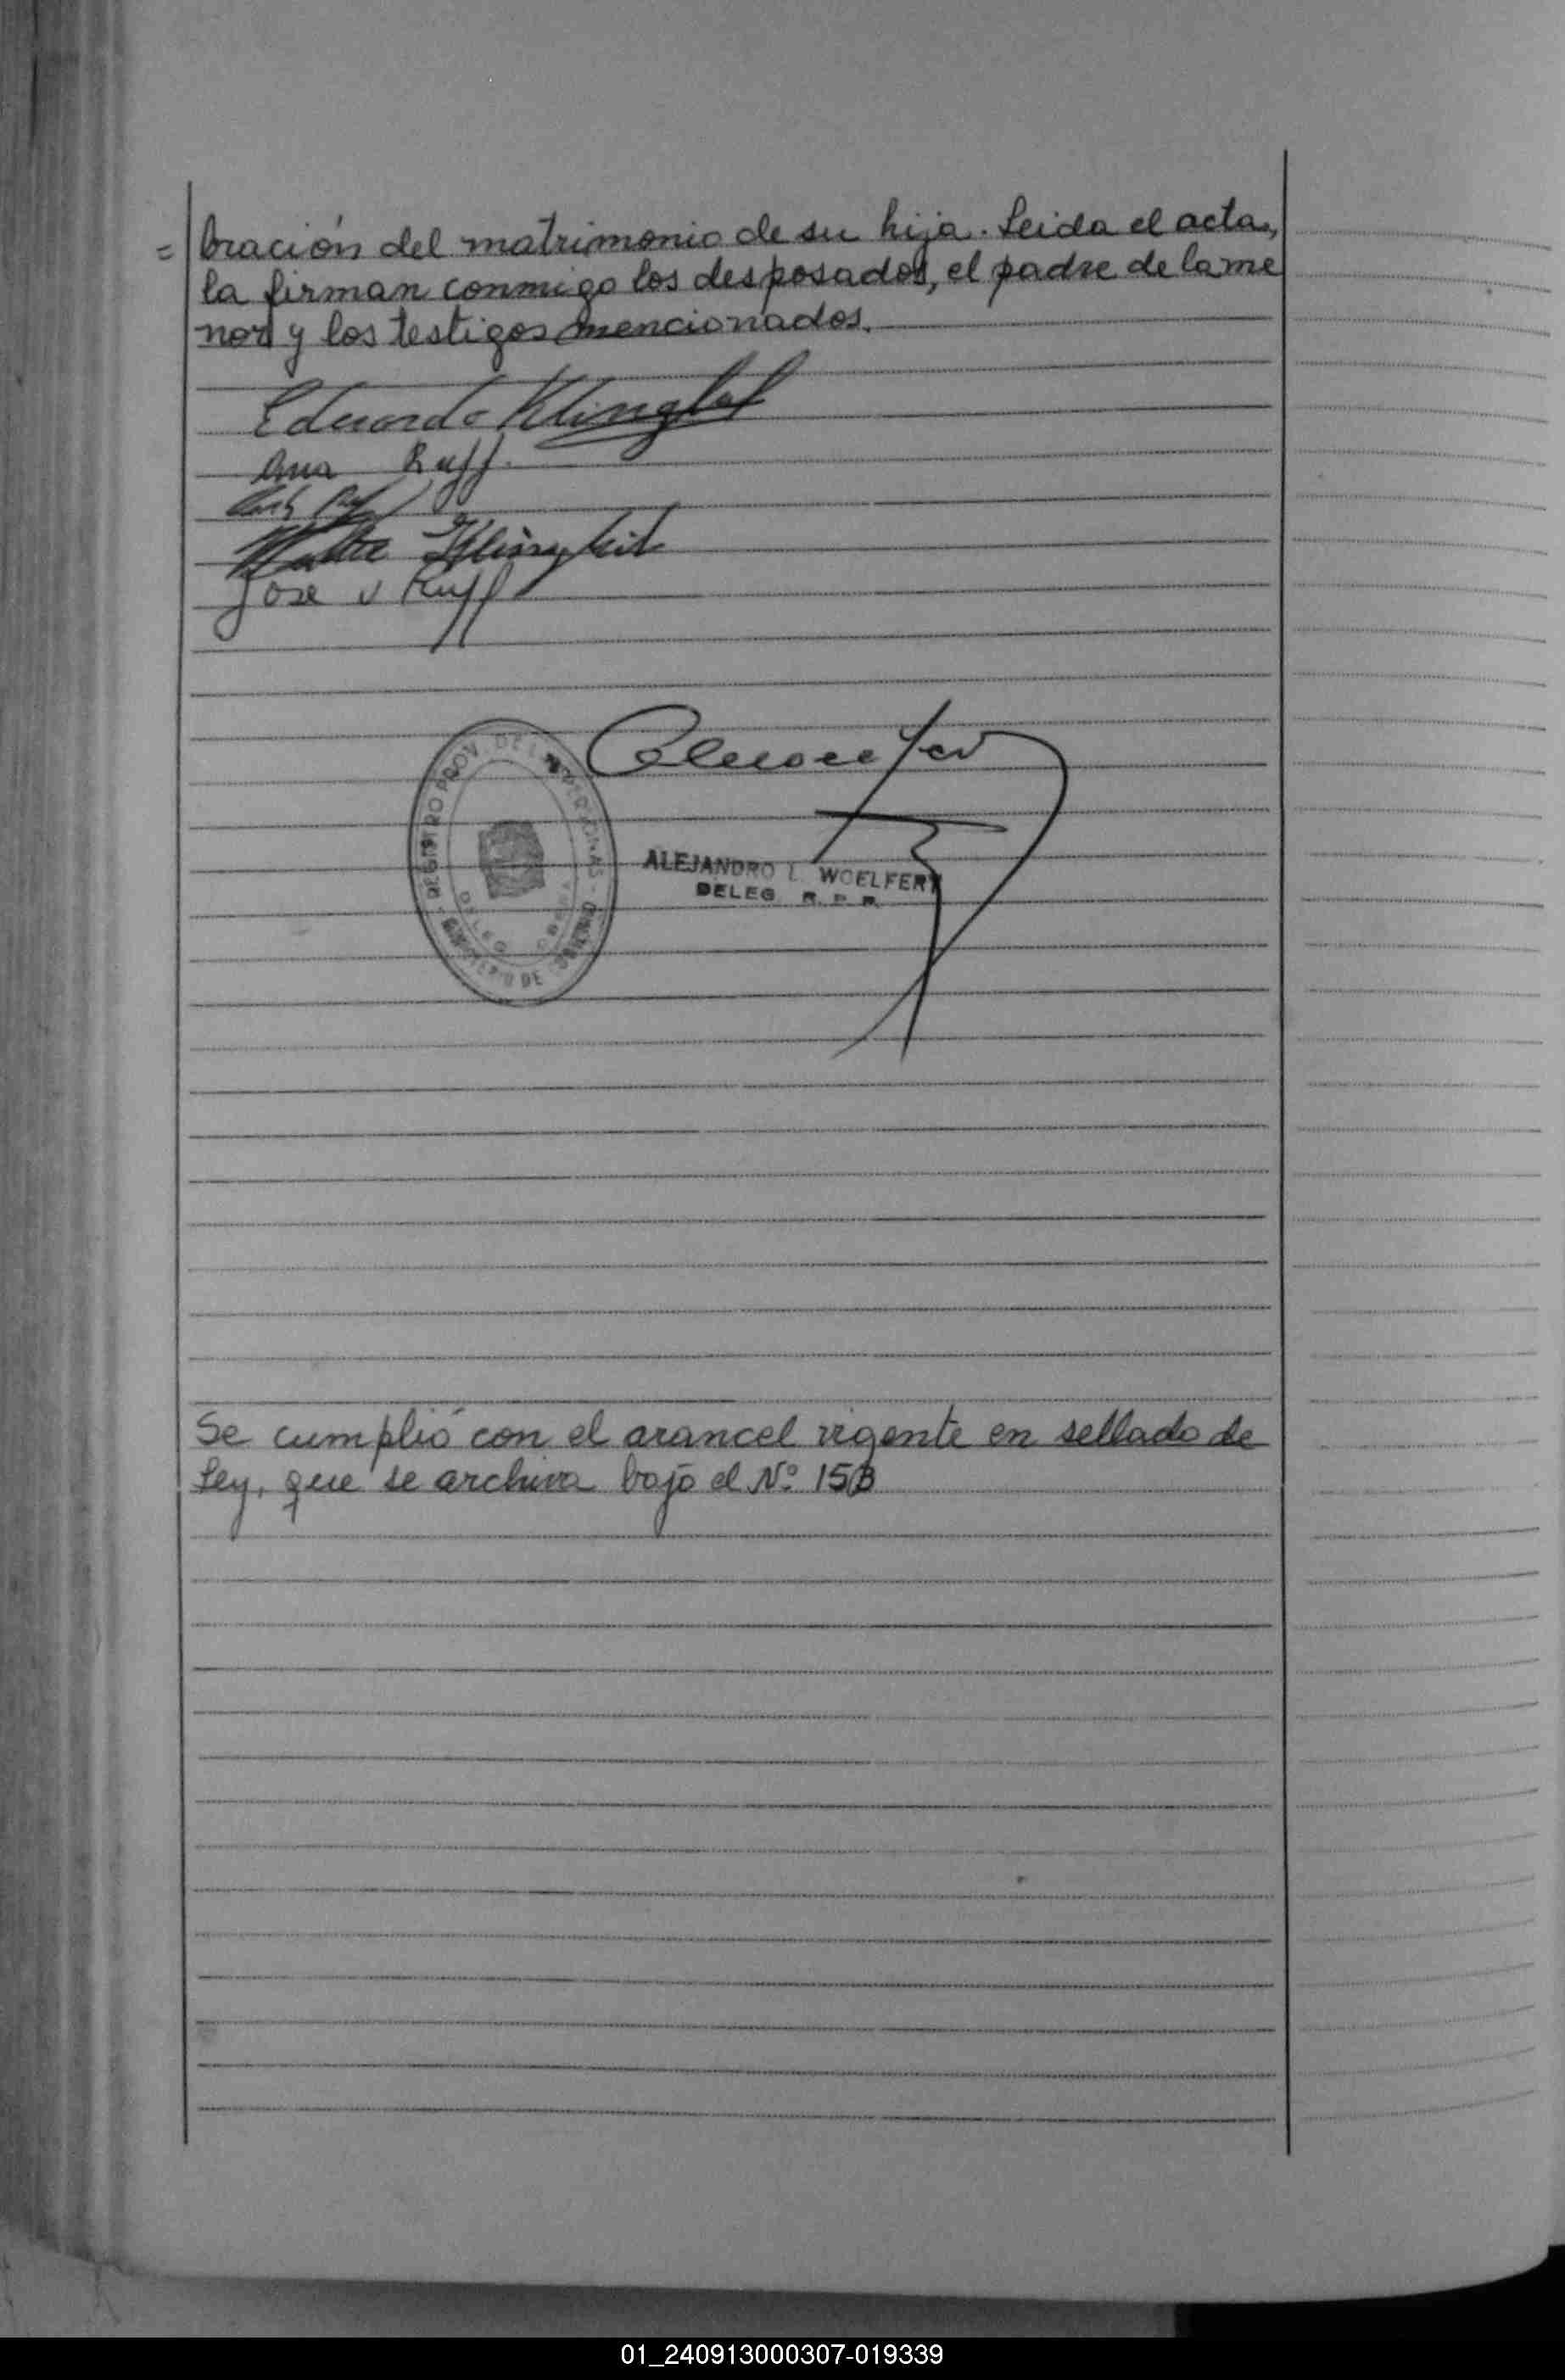 = bración del matrimonio de su hija. Leida el acta,
la firman conmigo los desposados, el padre de la me
nor y los testigos mencionados.
Eduardo
Ana Ruff.
Jose Ruff
REGISTRO PROV. DE LAS PERSONAS
MINISTERIO DE GOBIERNO
DELEG
ALEJANDRO L. WOELFERT
DELEG. R. P. P.
Se cumplió con el arancel vigente en sellado de
Ley, que se archiva bajo el Nº 153
01_240913000307-019339